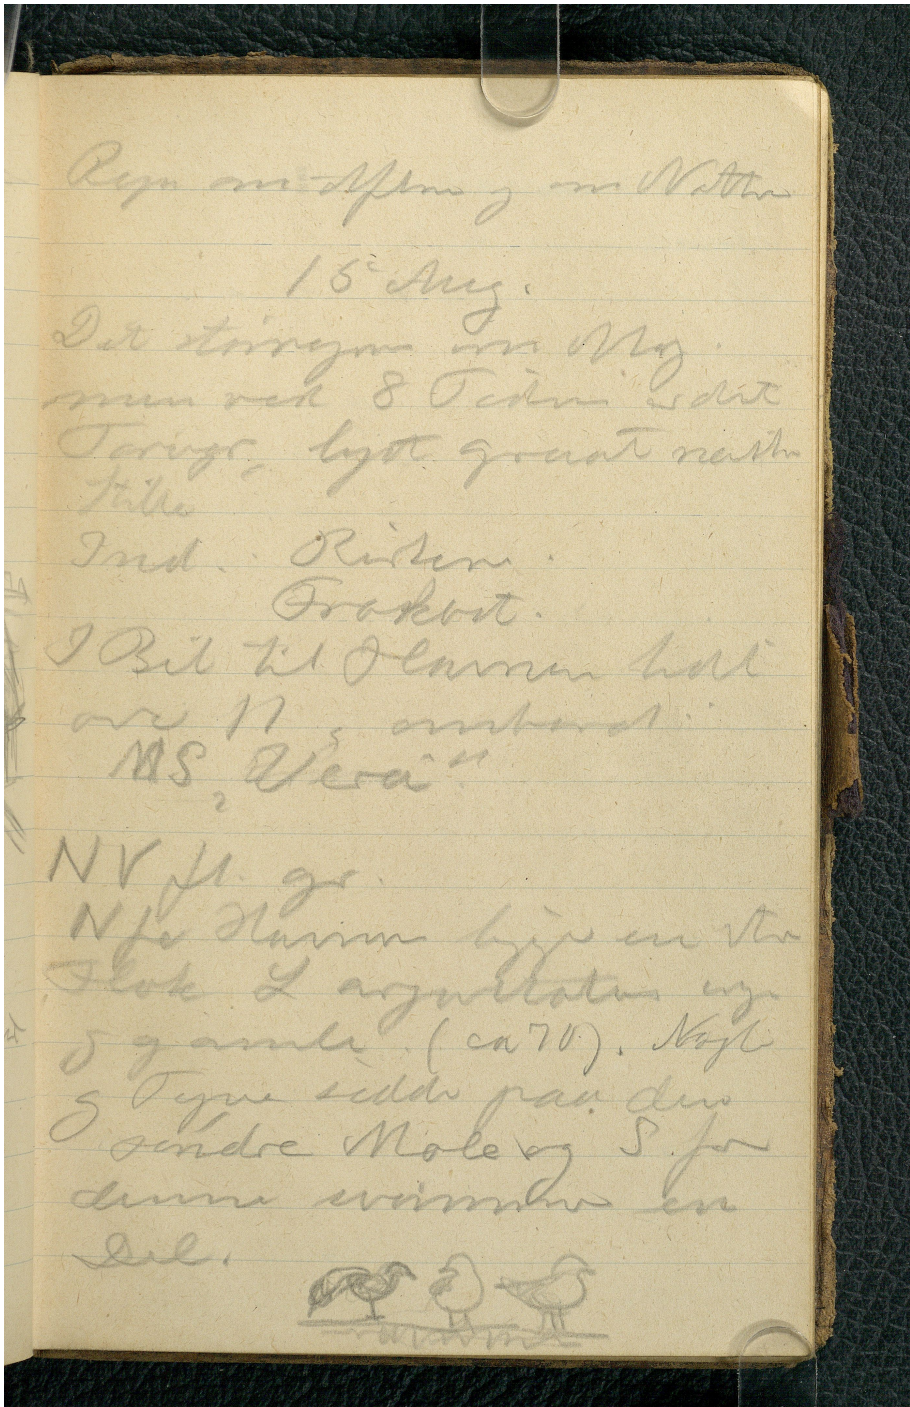 Regn om Aftnen og om Natten
15 Aug.
Det störregner om Mrg.
men ved 8 Tiden er det
Torvejr, lyst graat næsten
Stille
Ind.
Frokost.
I Bil til Havnen lidt
over 11 ombord
MS "Vera"
NV fl. gr.
N for Havnen ligger en stor
Flok L argentatus unge
og gamle (ca 70). Nogle
og Tyve sidde paa den
søndre Mole og S. for
denne svömmer en
Del.